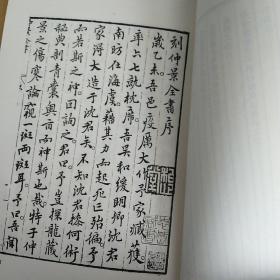 刻仲景全書序
歲乙未吾邑疫厲大作予家臧獲
率六七就枕席吾吳和緩明卿沈君
南昉在海虞藉其力而起死亡殆徧予
家得大造于沈君矣不知沈君操何術
而若斯之神因詢之君曰予豈探龍藏
秘典剖青囊奧旨而神斯也哉特于仲
景之傷寒論窺一斑兩斑耳予曰吾聞